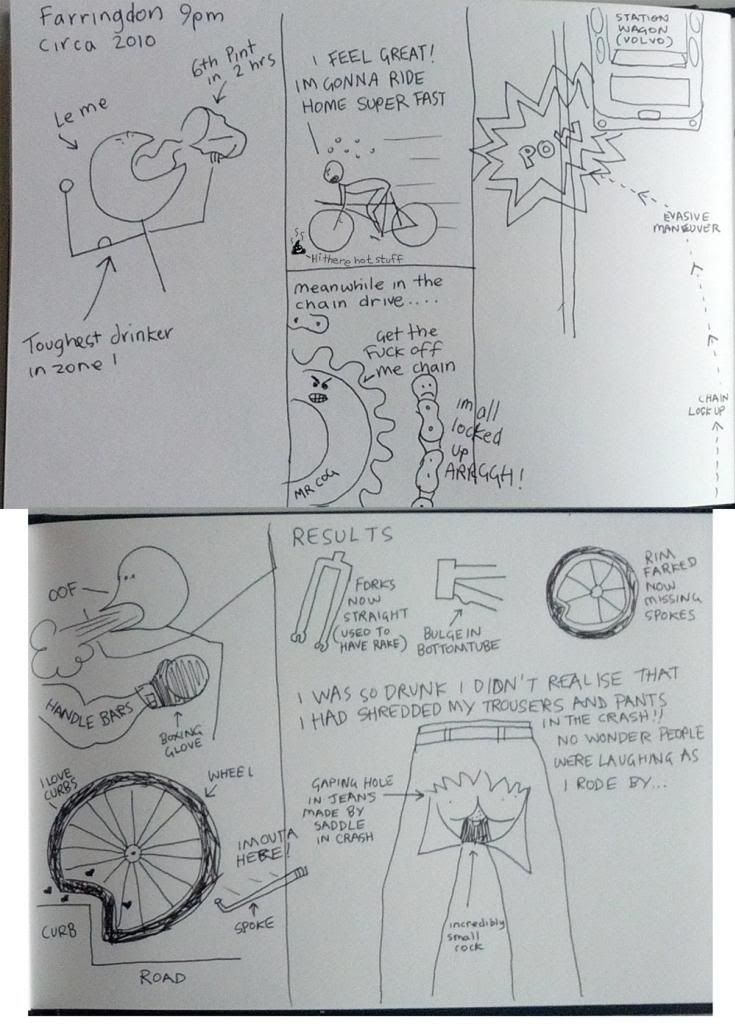 Farringdon 9pm
circa 2010
6th Pint
in 2 hrs
Le me
Toughest drinker
in zone!
I FEEL GREAT!
IM GONNA RIDE
HOME SUPER FAST
Hi there hot stuff
meanwhile in the
chain drive....
Get the
FUCK off
me chain
MR COG
im all
locked
up
ARRGGH!
STATION
WAGON
(VOLVO)
POW
EVASIVE
MANEUVER
CHAIN
LOCK UP
OOF
HANDLE BARS
BOXING
GLOVE
I LOVE
CURBS
WHEEL
IM OUTA
HERE!
SPOKE
CURB
ROAD
RESULTS
FORKS
NOW
STRAIGHT
(USED TO
HAVE RAKE)
BULGE IN
BOTTOM TUBE
RIM
FARKED
NOW
MISSING
SPOKES
I WAS SO DRUNK I DIDN'T REALISE THAT
I HAD SHREDDED MY TROUSERS AND PANTS
IN THE CRASH!!
NO WONDER PEOPLE
WERE LAUGHING AS
I RODE BY...
GAPING HOLE
IN JEANS
MADE BY
SADDLE
IN CRASH
incredibly
small
cock